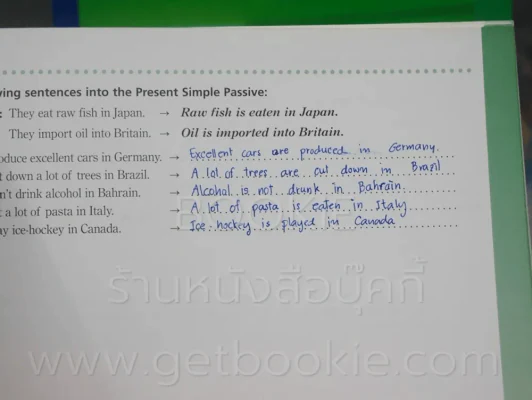 ving sentences into the Present Simple Passive:
: They eat raw fish in Japan. → Raw fish is eaten in Japan.
They import oil into Britain. → Oil is imported into Britain.
oduce excellent cars in Germany. → Excellent cars are produced in Germany.
t down a lot of trees in Brazil. → A lot of trees are cut down in Brazil
n't drink alcohol in Bahrain. → Alcohol is not drunk in Bahrain
t a lot of pasta in Italy. → A lot of pasta is eaten in Italy
ay ice-hockey in Canada. → Ice hockey is played in Canada
ร้านหนังสือบุ๊คกี้
www.getbookie.com